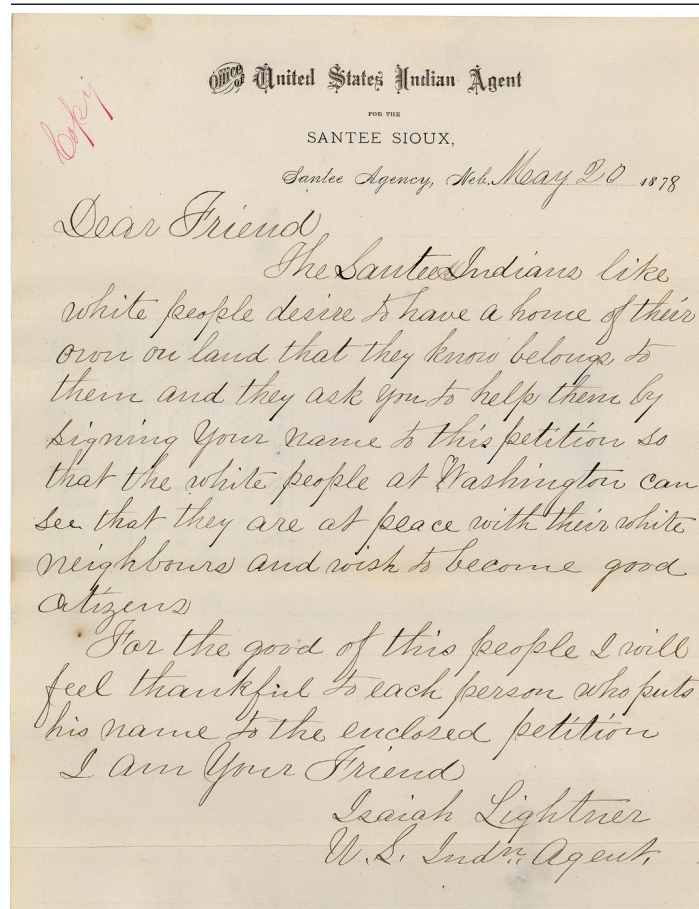 Office of United States Indian Agent
FOR THE
SANTEE SIOUX,
Copy
Santee Agency, Neb. May 20 1878
Dear Friend
The Santee Indians like
white people desire to have a home of their
own on land that they know belongs to
them and they ask you to help them by
signing your name to this petition so
that the white people at Washington can
see that they are at peace with their white
neighbours and wish to become good
citizens
For the good of this people I will
feel thankful to each person who puts
his name to the enclosed petition
I am Your Friend
Isaiah Lightner
U.S. Indn. Agent.